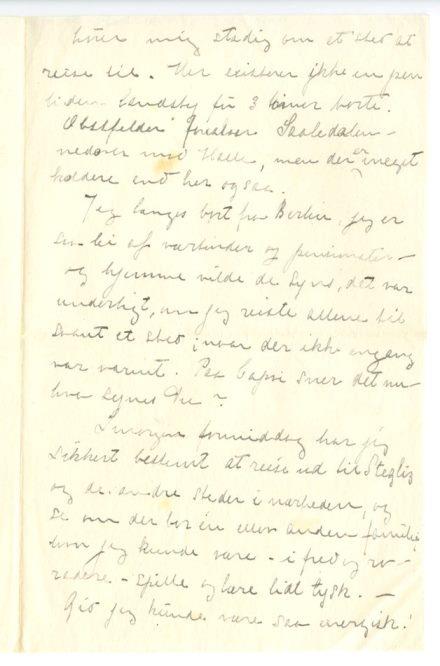 hører mig stadig om et sted at
reise til. Her existerer ikke en pen
liden landsby før 3 timer borte.
Obstfelder foreslaar Saaledalen –
nedover mod Halle, men der er meget
koldere end her ogsaa.
Jeg længes bort fra Berlin, jeg er
saa lei af værtinder og pensionater –
og hjemme vilde de synes, det var
underligt, om jeg reiste allene til
saant et sted, hvor der ikke engang
var varmt. Paa Capri sner det nu –
hva synes Du?
Imorgen formiddag har jeg
sikkert bestemt at reise ud til Stegliz
og de andre steder i nærheden, og
se om der bor en eller anden familie,
hvor jeg kunde være – i fred og ro –
radere. – spille og lære lidt tysk. –
Gid jeg kunde være saa energisk!